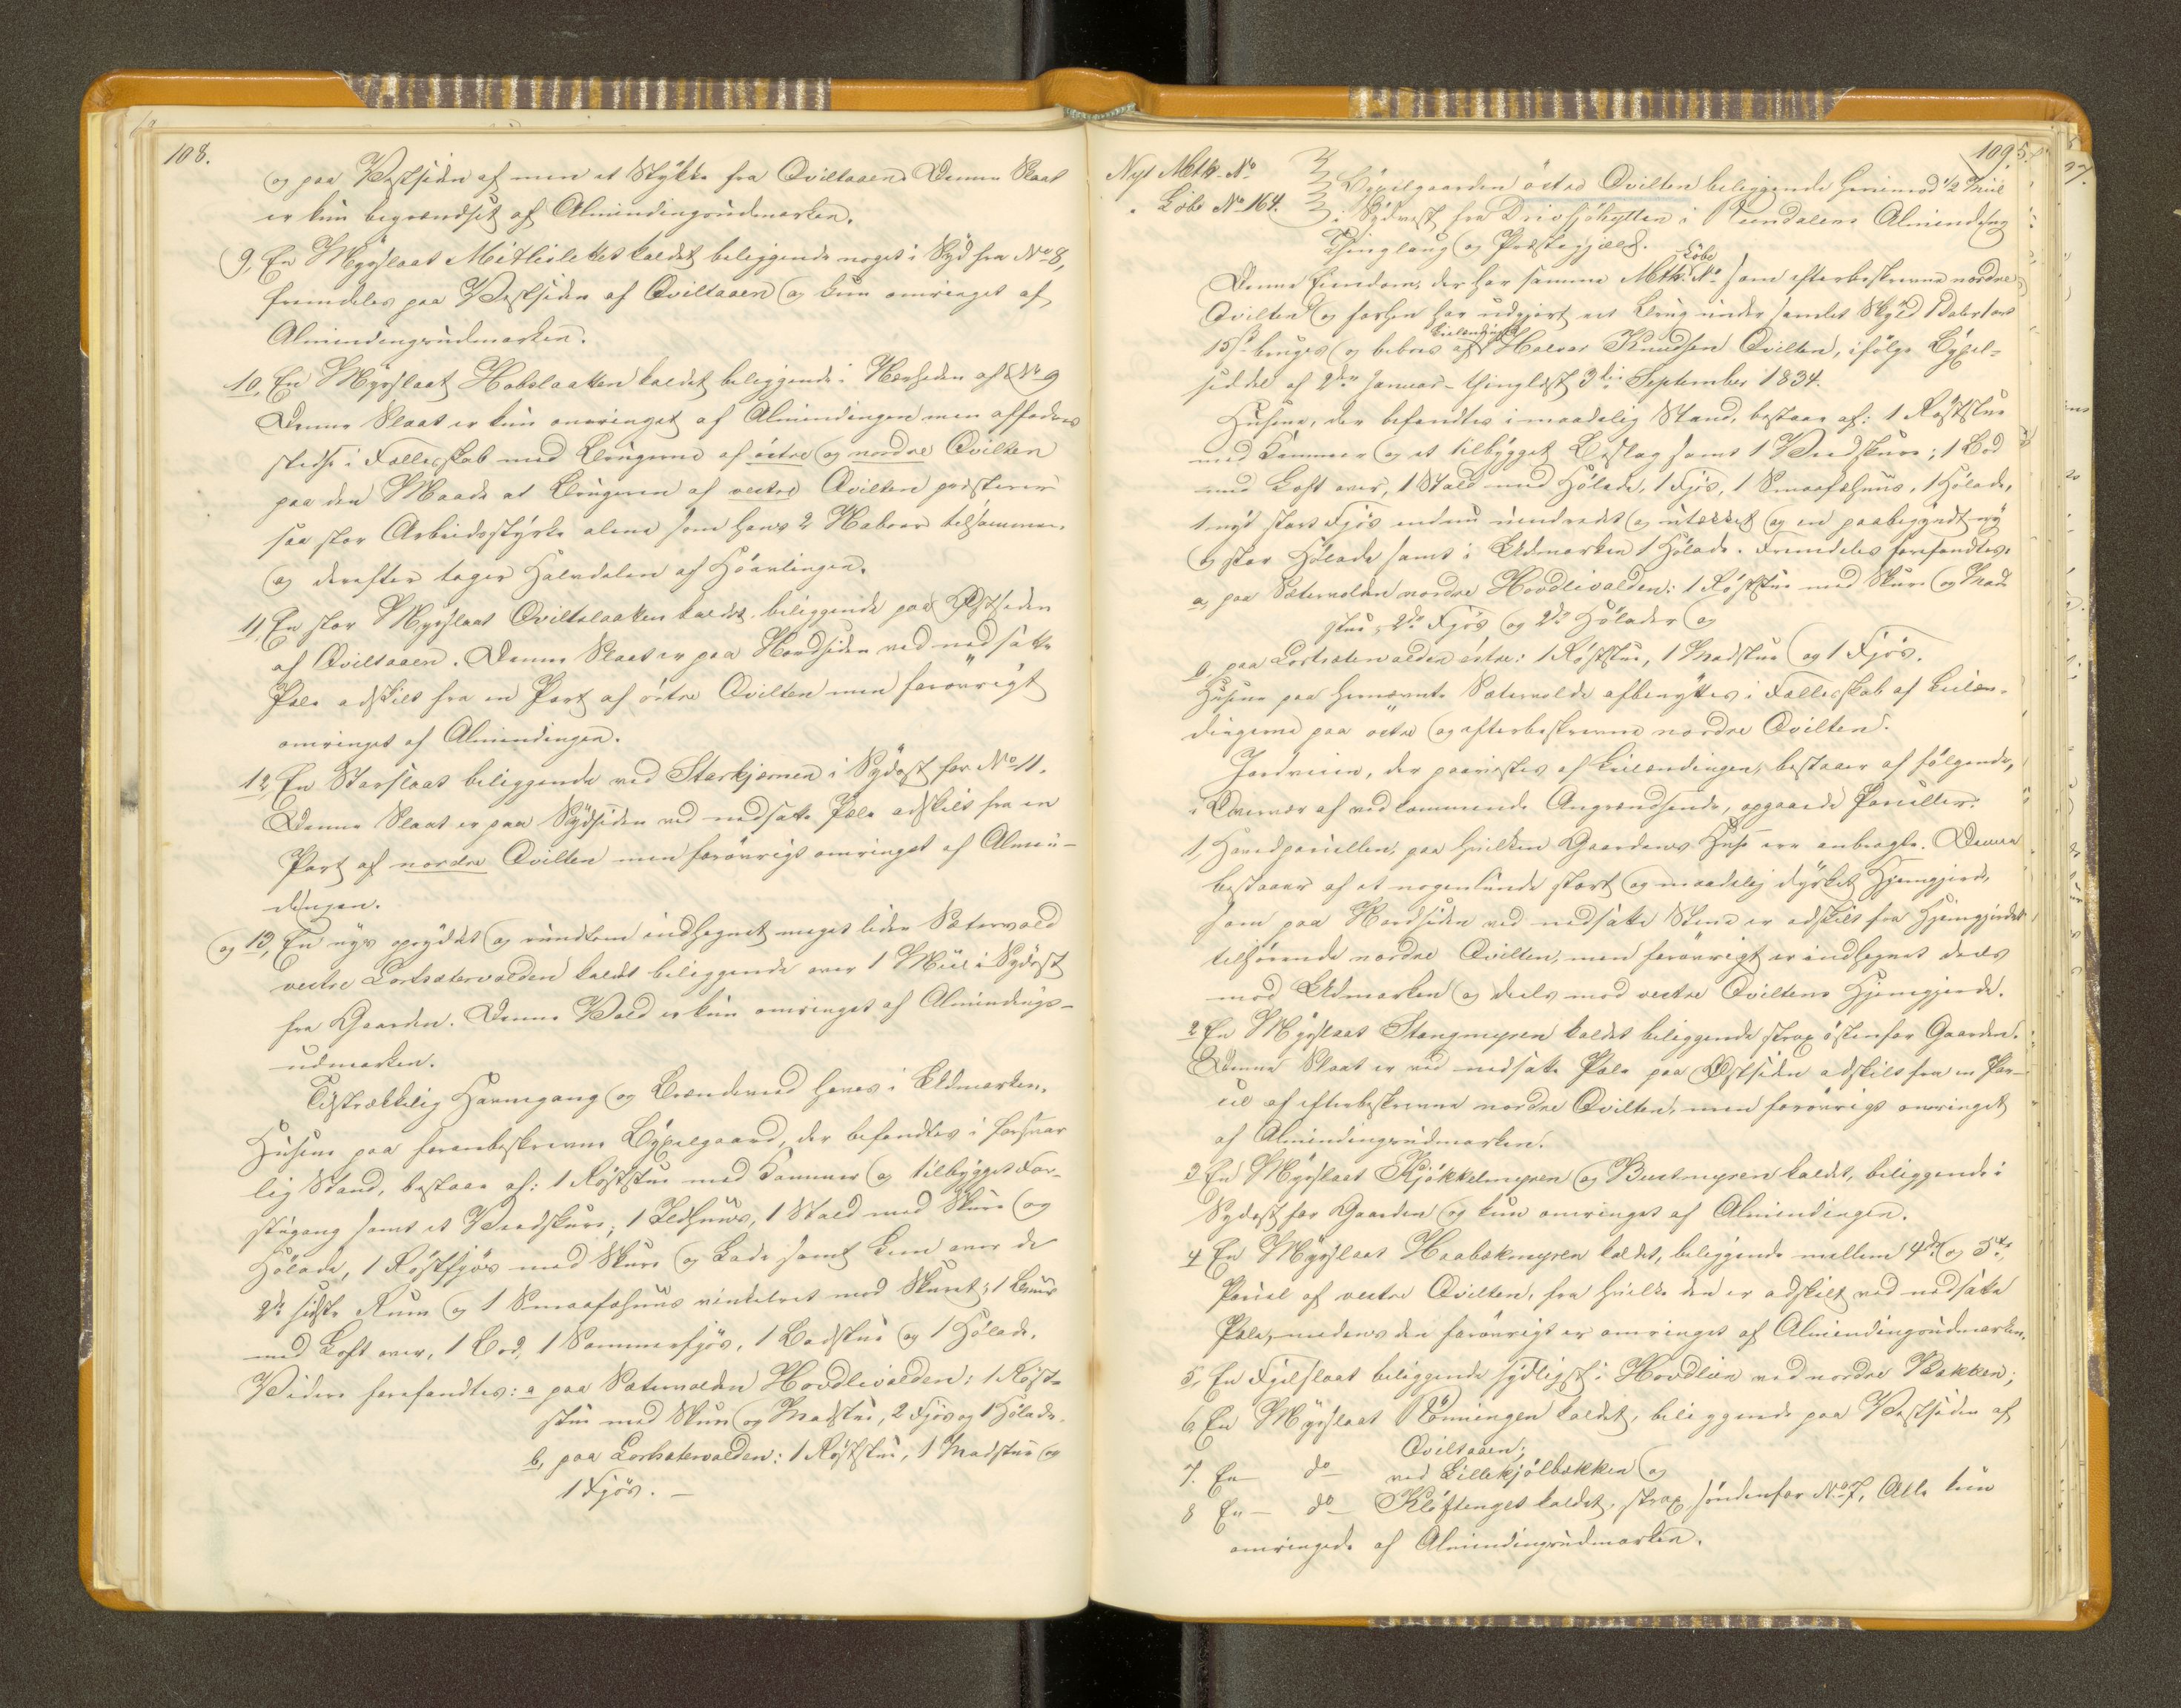 108.
og paa Vestsiden af men et Stykke fra Qviltaaen. Denne Slaat
er kun begrændset af Almindingsudmarken.
9, En Myrslaat Mitlislettet kaldet beliggende noget i Syd fra No 8,
fremdeles paa Vestsiden af Qviltaaen og kun omringet af
Almindingsudmarken.
10, En Myrslaat Hakslaatten kaldet beliggende i Nærheden af No 9
Denne Slaat er kun omringet af Almindingen men affodres
stedse i Fællesskab med Brugerne af östre og nordre Qvilten
paa den Maade at Brugeren af vestre Qvilten præsterer
saa stor Arbeidsstyrke alene som hans 2 Naboer tilsammen,
og derefter tager Halvdelen af Höavlingen.
11, En stor Myrslaat Qviltslaaken kaldet, beliggende paa Östsiden
af Qviltaaen. Denne Slaat er paa Nordsiden ved nedsatte
Pæle adskilt fra en Part af östre Qvilten men forövrigt
omringet af Almindingen.
12, En Starslaat beliggende ved Starkjærnen i Sydost for No 11.
Denne Slaat er paa Sydsiden ved nedsatte Pæle adskilt fra en
Part af nordre Qvilten men forövrigt omringet af Almin-
dingen.
og 13, En nys oprÿddet og rundtom indhegnet meget liden Sætervold
vestre Lortsætervolden kaldet beliggende over 1 Miil i Sydöst
fra Gaarden. Denne Vold er kun omringet af Almindings-
udmarken.
Tilstrækkelig Havnegang og Brændeved haves i Udmarken.
Husene paa foranbeskrevne Bÿxelgaard, der befandtes i forsvar
lig Stand, bestaar af: 1 Röststue med Kammer og tilbygget For-
stugang samt et Veedskuur, 1 Ildhuus, 1 Stald med Skuur og
Hölade, 1 Röstfjös med Skuur og Lade samt Rum over de
2de sidste Rum og 1 Smaafæhuus vinkelret mod Skuret; 1 Buur
med Loft over, 1 Bod, 1 Sommerfjös, 1 Badstue og 1 Hölade.
Videre forefandtes: a paa Sætervolden Hovdlivolden: 1 Röst-
stue med Skuur og Madstue, 2 Fjös og 1 Hölade.
b, paa Lortsætervolden: 1 Röststue, 1 Madstue og
1 Fjös. —
109.
Nyt Mtk. No
" Löbe No 164.
Bÿxelgaarden östre Qvilten beliggende henimod 1/2 Miil
i Sydvest fra Drivsjöhytten i Rendalens Alminding
Thinglaug og Præstegjæld.
Denne Eiendom, der har samme Mtk. Löbe No som efterbeskrevne nordre
Qvilten og forhen har udgjort eet Brug under samlet Skyld 1 Daler 1 ort
15 s. bruges og beboes af Leilændingen Halvor Knudsen Qvilten, ifölge Bÿxel-
seddel af 2den Januar – thinglæst 3die September 1834.
Husene, der befandtes i maadelig Stand, bestaar af: 1 Röststue
med Kammer og et tilbÿgget Beslag samt 1 Veedskuur; 1 Bod
med Loft over, 1 Stald med Hölade, 1 Fjös, 1 Smaafæhuus, 1 Hölade,
1 nyt stort Fjös endnu uindredet og utækket og en paabegyndt ny
og stor Hölade samt i Udmarken 1 Hölade. Fremdeles forefandtes:
a, paa Sætervolden nordre Hovdlivolden: 1 Röststue med Skuur og Mad
stue, 2de Fjös og 2de Hölader og
b, paa Lortsætervolden östre: 1 Röststue, 1 Madstue og 1 Fjös.
Husene paa hernævnte Sætervolde afbenyttes i Fællesskab af Leilæn-
dingerne paa östre og efterbeskrevne nordre Qvilten.
Jordveien, der paavistes af Leilændingen, bestaaer af fölgende,
i Overvær af vedkommende Angrændsende, opgaaede Parceller:
1, Hovedparcellen, paa hvilken Gaardens Huse ere anbragte. Denne
bestaaer af et nogenlunde stort og maadelig dÿrket Hjemgjerde,
som paa Nordsiden ved nedsatte Stene er adskilt fra Hjemgjerdet
tilhörende nordre Qvilten, men forövrigt er indhegnet deels
mod Udmarken og deels mod vestre Qviltens Hjemgjerde.
2 En Myrslaat Stangmyren kaldet beliggende strax östenfor Gaarden.
Denne Slaat er ved nedsatte Pæle paa Östsiden adskilt fra en Par-
cel af efterbeskrevne nordre Qvilten, men forövrigt omringet
af Almindingsudmarken.
3 En Myrslaat Kjökkelmyren og Bustmyren kaldet, beliggende i
Sydost for Gaarden og kun omringet af Almindingen.
4 En Myrslaat Haabækmyren kaldet, beliggende mellem 4de og 5te
Parcel af vestre Qvilten, fra hvilke den er adskilt ved nedsatte
Pæle, medens den forövrigt er omringet af Almindingsudmarken.
5, En Fjeldslaat beliggende sydligst i Hovdlien ved nordre Bækken;
6, En Myrslaat Rönningen kaldet, beliggende paa Vestsiden af
Qviltaaen;
7. En — do — ved Lillekjölbækken og
8 En — do — Klöftenget kaldet, strax söndenfor No 7, Alle kun
omringede af Almindingsudmarken.